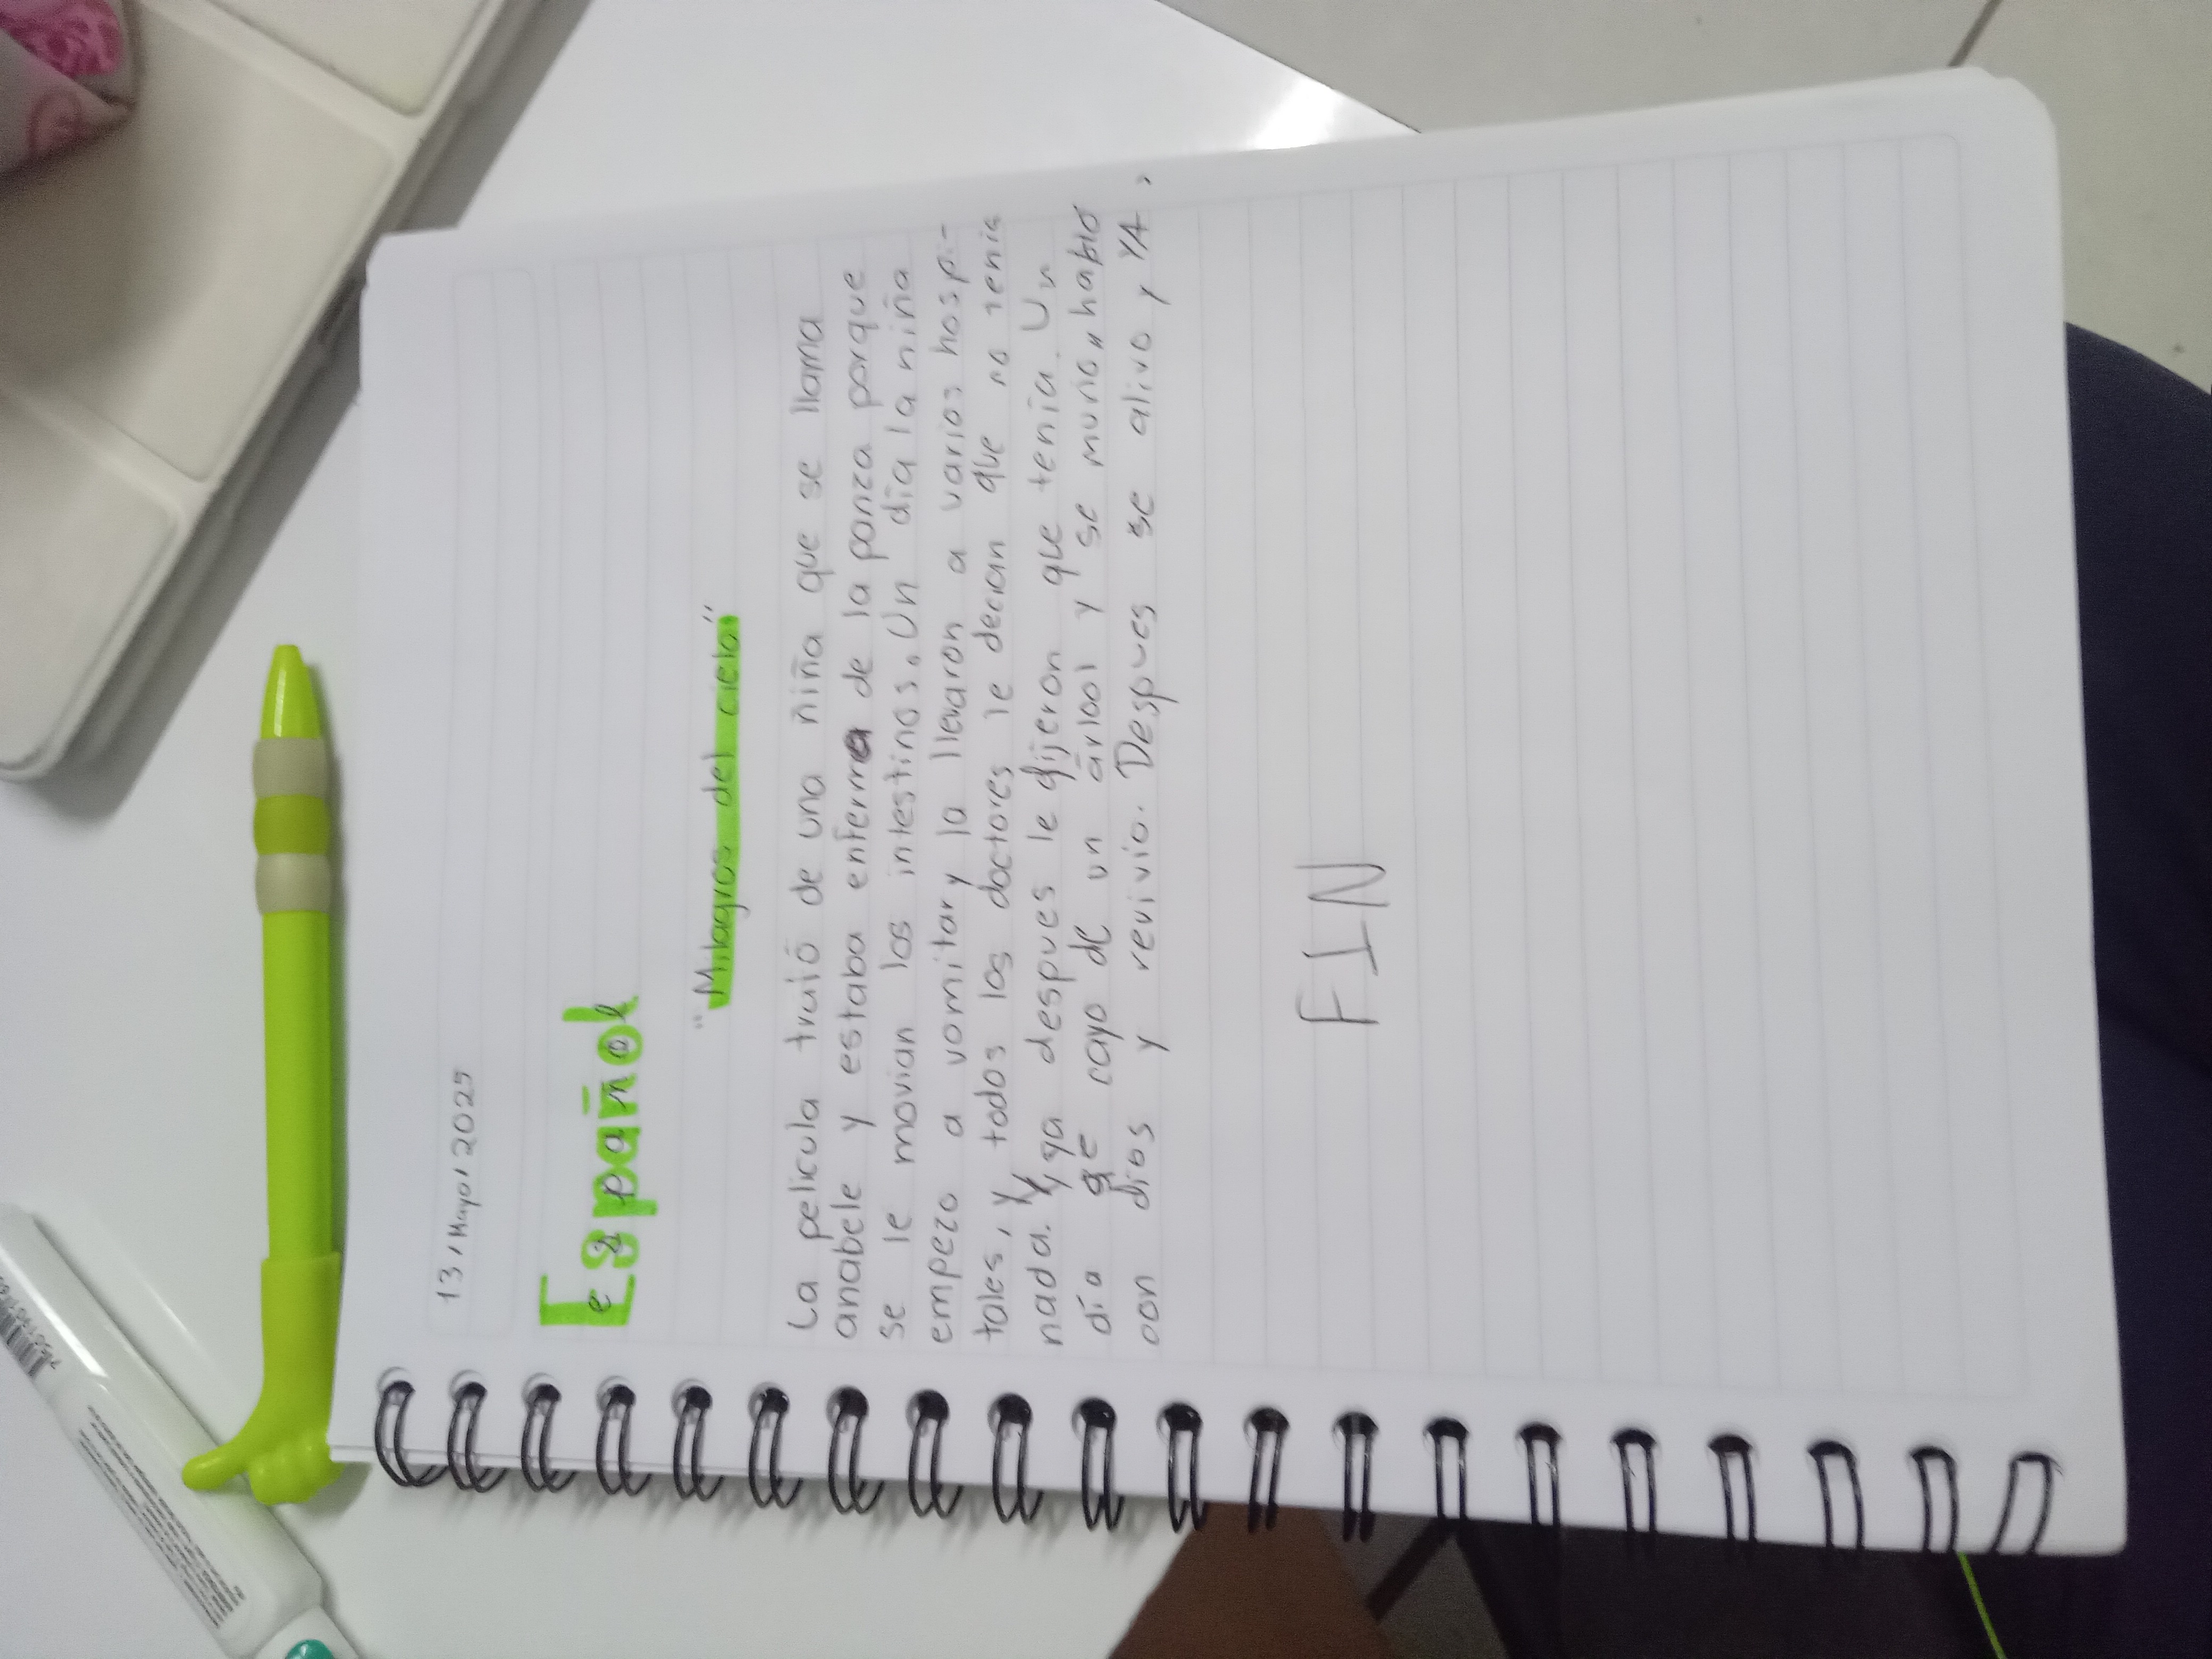 13/Mayo/2025
Español
"Milagros del cielo"
La pelicula truió de una niña que se llama
anabele y estaba enferma de la panza porque
se le movian los intestinos. Un día la niña
empezo a vomitar y la llevaron a varios hospi-
tales, y todos los doctores le decian que no tenia
nada. Y ya despues le dijeron que tenia. Un
día se cayo de un árbol y se murio, hablo
con dios y revivio. Despues se alivo y YA,
FIN